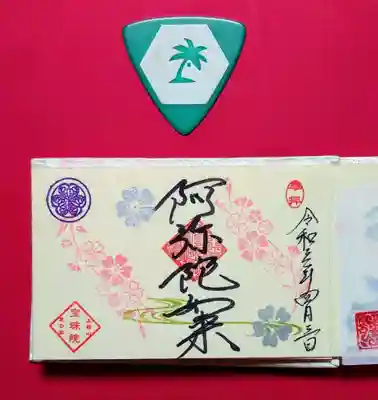 奉拝
令和三年四月三日
阿弥陀如来
宝珠院